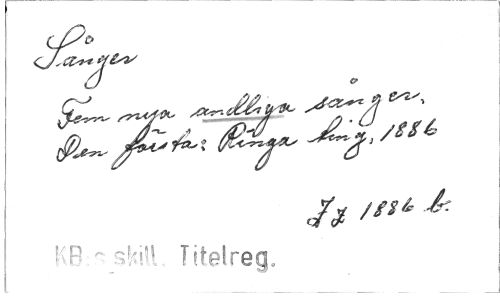 Sånger
Fem nya andliga sånger.
Den första: Ringa ting, 1886
Zz 1886 b.
KB:s skill. Titelreg.